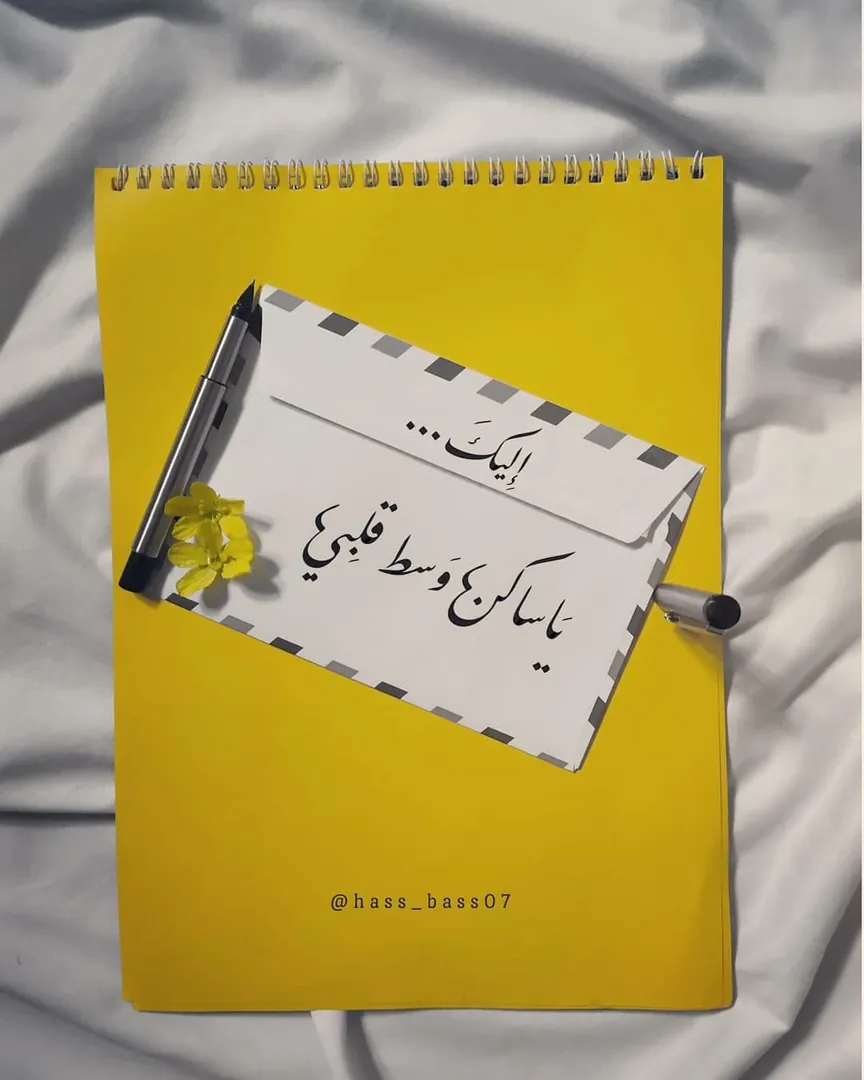 إِليكَ...
يَاساكنها وَسط قلبِيها
@hass_bass07